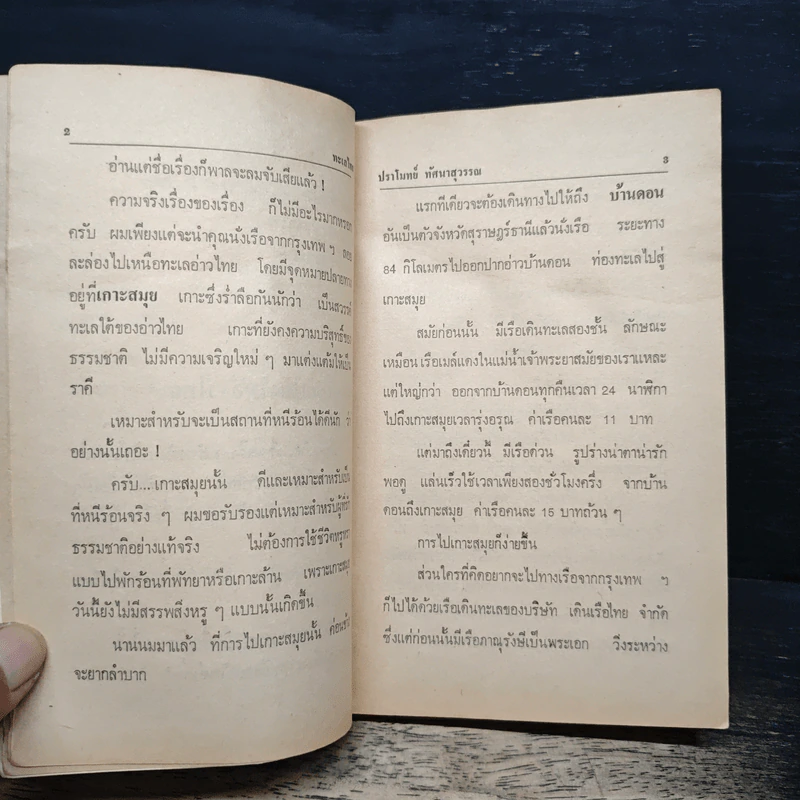 2
ทะเลไทย
อ่านแต่ชื่อเรื่องก็พาลจะลมจับเสียแล้ว !
ความจริงเรื่องของเรื่อง ก็ไม่มีอะไรมากหรอก
ครับ ผมเพียงแต่จะนำคุณนั่งเรือจากกรุงเทพ ฯ
ละล่องไปเหนือทะเลอ่าวไทย โดยมีจุดหมายปลายทาง
อยู่ที่เกาะสมุย เกาะซึ่งร่ำลือกันนักว่า เป็นสวรรค์
ทะเลใต้ของอ่าวไทย เกาะที่ยังคงความบริสุทธิ์ของ
ธรรมชาติ ไม่มีความเจริญใหม่ ๆ มาแต่งแต้มให้เป็น
ราคี
เหมาะสำหรับจะเป็นสถานที่หนีร้อนได้ดีนัก ว่า
อย่างนั้นเถอะ !
ครับ...เกาะสมุยนั้น ดีและเหมาะสำหรับเป็น
ที่หนีร้อนจริง ๆ ผมขอรับรองแต่เหมาะสำหรับผู้ที่รัก
ธรรมชาติอย่างแท้จริง ไม่ต้องการใช้ชีวิตหรูหรา
แบบไปพักร้อนที่พัทยาหรือเกาะล้าน เพราะเกาะสมุย
วันนี้ยังไม่มีสรรพสิ่งหรู ๆ แบบนั้นเกิดขึ้น
นานนมมาแล้ว ที่การไปเกาะสมุยนั้น ค่อนข้าง
จะยากลำบาก
ปราโมทย์ ทัศนาสุวรรณ
3
แรกทีเดียวจะต้องเดินทางไปให้ถึง บ้านดอน
อันเป็นตัวจังหวัดสุราษฎร์ธานีแล้วนั่งเรือ ระยะทาง
84 กิโลเมตรไปออกปากอ่าวบ้านดอน ท่องทะเลไปสู่
เกาะสมุย
สมัยก่อนนั้น มีเรือเดินทะเลสองชั้น ลักษณะ
เหมือนเรือเมล์แดงในแม่น้ำเจ้าพระยาสมัยของเราแหละ
แต่ใหญ่กว่า ออกจากบ้านดอนทุกคืนเวลา 24 นาฬิกา
ไปถึงเกาะสมุยเวลารุ่งอรุณ ค่าเรือคนละ 11 บาท
แต่มาถึงเดี๋ยวนี้ มีเรือด่วน รูปร่างน่าตาน่ารัก
พอดู แล่นเร็วใช้เวลาเพียงสองชั่วโมงครึ่ง จากบ้าน
ดอนถึงเกาะสมุย ค่าเรือคนละ 15 บาทถ้วน ๆ
การไปเกาะสมุยก็ง่ายขึ้น
ส่วนใครที่คิดอยากจะไปทางเรือจากกรุงเทพ ฯ
ก็ไปได้ด้วยเรือเดินทะเลของบริษัท เดินเรือไทย จำกัด
ซึ่งแต่ก่อนนั้นมีเรือภาณุรังษีเป็นพระเอก วิ่งระหว่าง